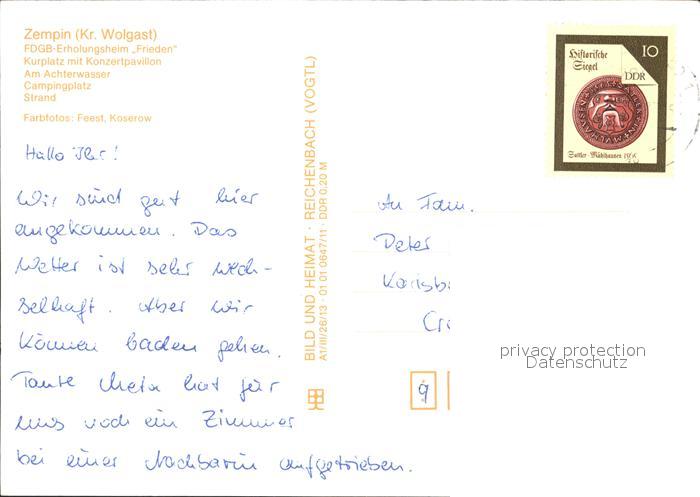 Zempin (Kr. Wolgast)
FDGB-Erholungsheim „Frieden"
Kurplatz mit Konzertpavillon
Am Achterwasser
Campingplatz
Strand
Farbfotos: Feest, Koserow
Hallo Ihr!
Wir sind gut hier
angekommen. Das
Wetter ist sehr wech-
selhaft. Aber wir
können baden gehen.
Tante Meta hat für
uns noch ein Zimmer
bei einer Nachbarin aufgetrieben.
BILD UND HEIMAT · REICHENBACH (VOGTL)
A1/III/26/13 · 01 01 0647/11 · DDR 0,20 M
Historische
Siegel
10
DDR
Sattler · Mühlhausen 1565
An Fam.
Peter
Karlsb
Cr
9
privacy protection
Datenschutz